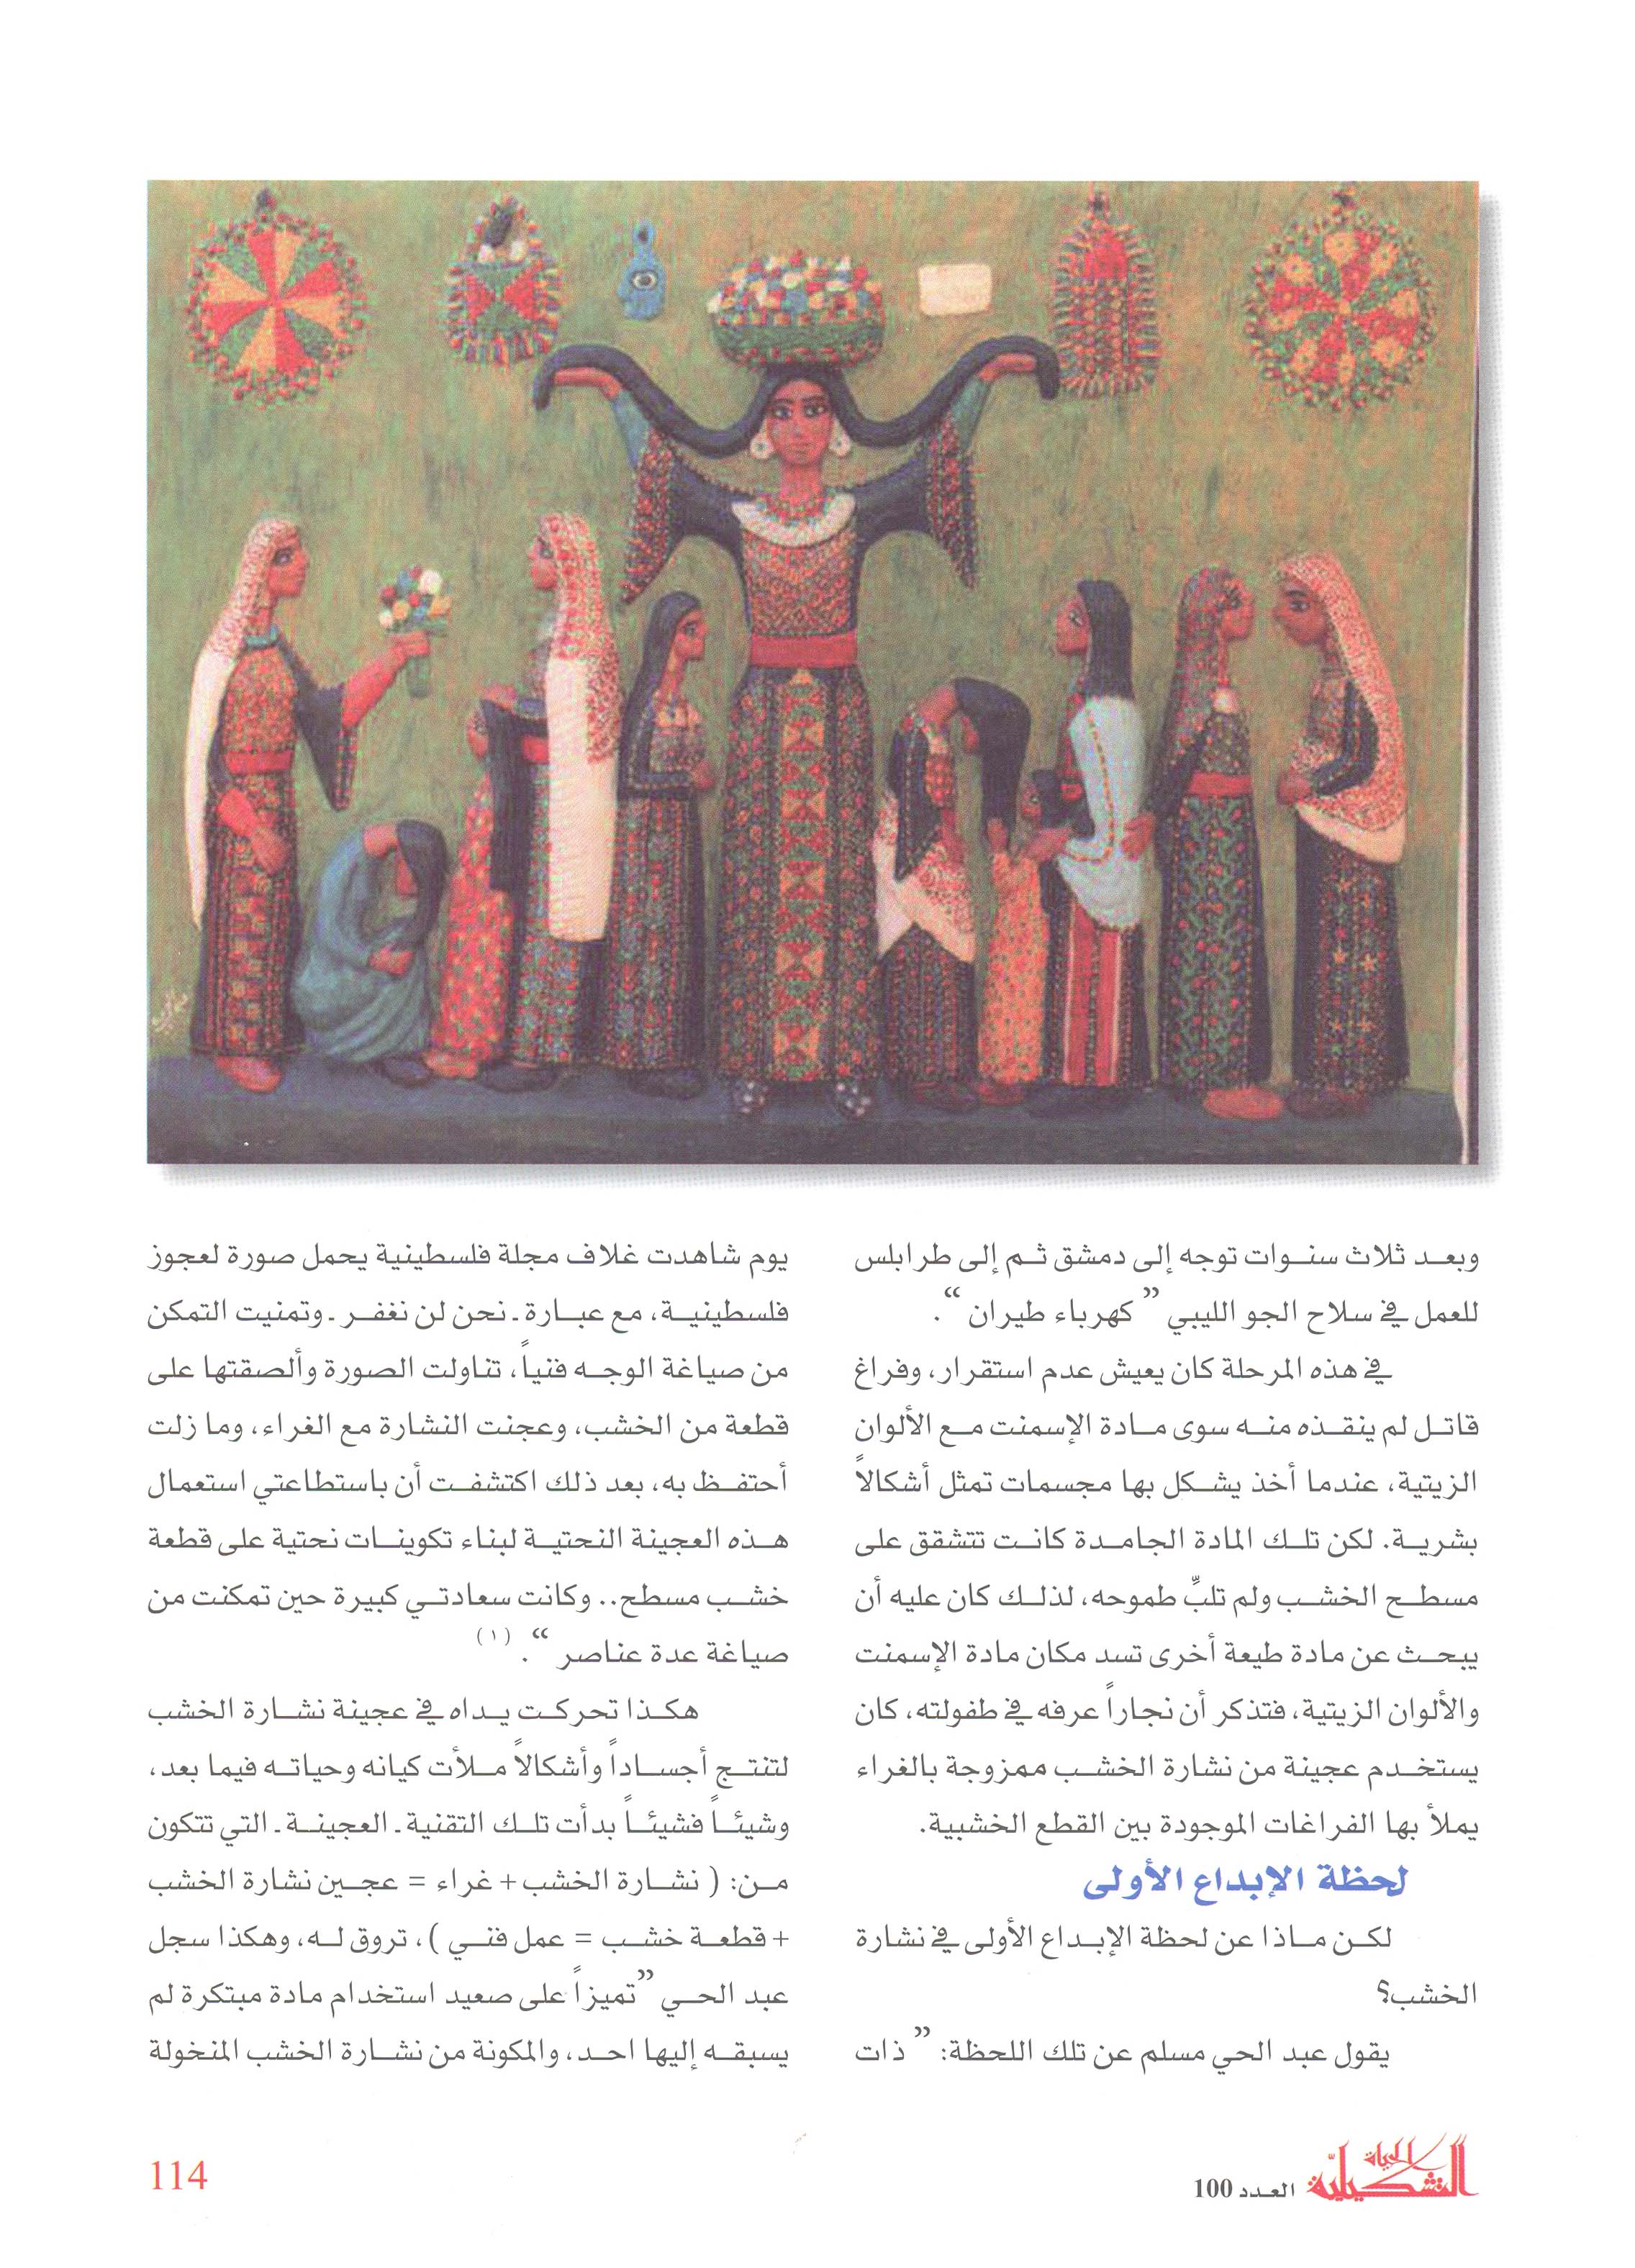 وبعد ثلاث سنوات توجه إلى دمشق ثم إلى طرابلس
للعمل في سلاح الجو الليبي ” كهرباء طيران “ .
في هذه المرحلة كان يعيش عدم استقرار، وفراغ
قاتل لم ينقذه منه سوى مادة الإسمنت مع الألوان
الزيتية، عندما أخذ يشكل بها مجسمات تمثل أشكالاً
بشرية. لكن تلك المادة الجامدة كانت تتشقق على
مسطح الخشب ولم تلبِّ طموحه، لذلك كان عليه أن
يبحث عن مادة طيعة أخرى تسد مكان مادة الإسمنت
والألوان الزيتية، فتذكر أن نجاراً عرفه في طفولته، كان
يستخدم عجينة من نشارة الخشب ممزوجة بالغراء
يملأ بها الفراغات الموجودة بين القطع الخشبية.
لحظة الإبداع الأولى
لكن ماذا عن لحظة الإبداع الأولى في نشارة
الخشب؟
يقول عبد الحي مسلم عن تلك اللحظة: ” ذات
يوم شاهدت غلاف مجلة فلسطينية يحمل صورة لعجوز
فلسطينية، مع عبارة ـ نحن لن نغفر ـ وتمنيت التمكن
من صياغة الوجه فنياً، تناولت الصورة وألصقتها على
قطعة من الخشب، وعجنت النشارة مع الغراء، وما زلت
أحتفظ به، بعد ذلك اكتشفت أن باستطاعتي استعمال
هذه العجينة النحتية لبناء تكوينات نحتية على قطعة
خشب مسطح.. وكانت سعادتي كبيرة حين تمكنت من
صياغة عدة عناصر “ . (١)
هكذا تحركت يداه في عجينة نشارة الخشب
لتنتج أجساداً وأشكالاً ملأت كيانه وحياته فيما بعد،
وشيئاً فشيئاً بدأت تلك التقنية ـ العجينة ـ التي تتكون
من: ( نشارة الخشب + غراء = عجين نشارة الخشب
+ قطعة خشب = عمل فني )، تروق له، وهكذا سجل
عبد الحي ”تميزاً على صعيد استخدام مادة مبتكرة لم
يسبقه إليها احد، والمكونة من نشارة الخشب المنخولة
الحياة التشكيلية
العدد 100
114